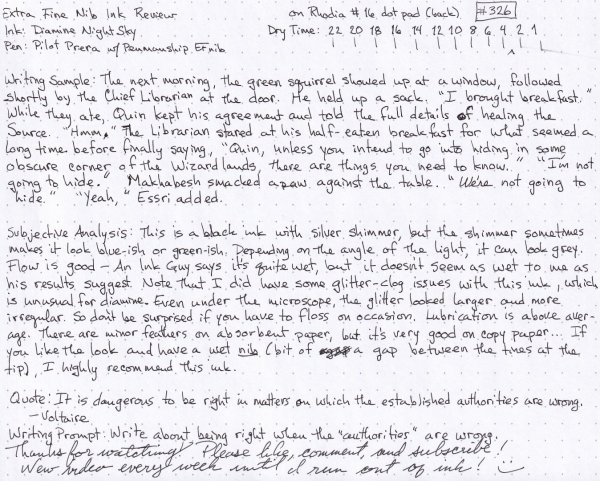 Extra Fine Nib Ink Review on Rhodia #16 dot pad (back) #326
Ink: Diamine Night Sky Dry Time: 22 20 18 16 14 12 10 8 6 4 2 1
Pen: Pilot Prera w/ Penmanship EF nib
Writing Sample: The next morning, the green squirrel showed up at a window, followed
shortly by the Chief Librarian at the door. He held up a sack. "I brought breakfast."
While they ate, Quin kept his agreement and told the full details of healing the
Source. "Hmm." The Librarian stared at his half-eaten breakfast for what seemed a
long time before finally saying, "Quin, unless you intend to go into hiding in some
obscure corner of the Wizard lands, there are things you need to know." "I'm not
going to hide." Makhabesh smacked a paw against the table. "We're not going to
hide." "Yeah," Essri added.
Subjective Analysis: This is a black ink with silver shimmer, but the shimmer sometimes
makes it look blue-ish or green-ish. Depending on the angle of the light, it can look grey.
Flow is good – An Ink Guy says it's quite wet, but it doesn't seem as wet to me as
his results suggest. Note that I did have some glitter-clog issues with this ink, which
is unusual for diamine. Even under the microscope, the glitter looked larger and more
irregular. So don't be surprised if you have to floss on occasion. Lubrication is above aver-
age. There are minor feathers on absorbent paper, but it's very good on copy paper... If
you like the look and have a wet nib (bit of a gap between the tines at the
tip), I highly recommend this ink.
Quote: It is dangerous to be right in matters on which the established authorities are wrong.
– Voltaire
Writing Prompt: Write about being right when the "authorities" are wrong.
Thanks for watching! Please like, comment, and subscribe!
New video every week until I run out of ink!